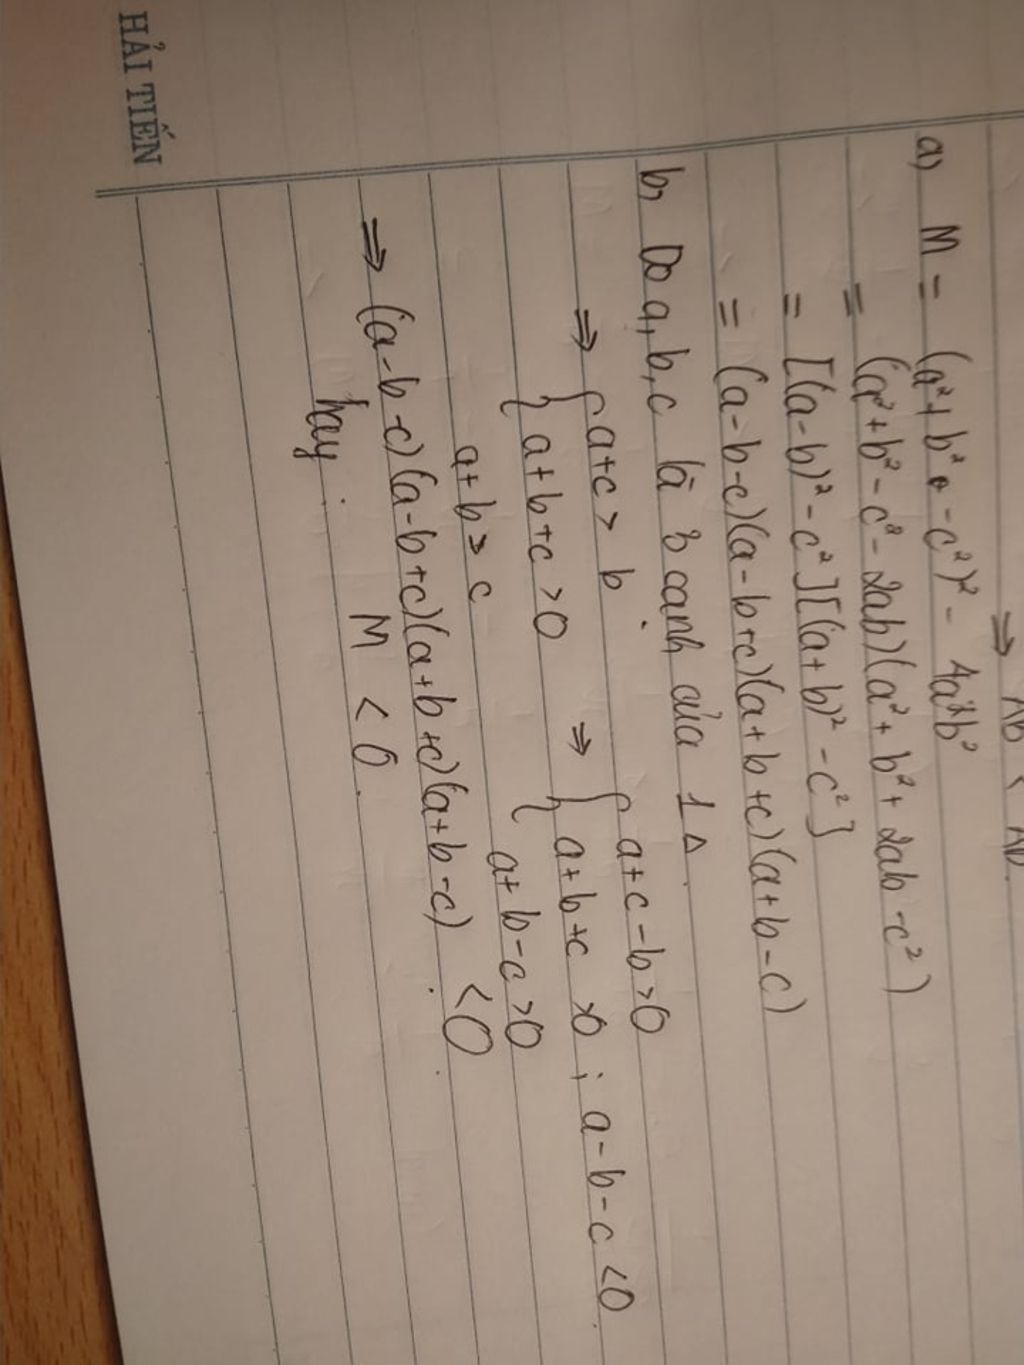 ⇒ AB < AD.
a) M = (a² + b² - c²)² - 4a²b²
= (a² + b² - c² - 2ab)(a² + b² + 2ab - c²)
= [(a-b)² - c²][(a+b)² - c²]
= (a-b-c)(a-b+c)(a+b+c)(a+b-c)
b, Do a, b, c là 3 cạnh của 1 Δ
⇒ { a+c > b
a+b+c > 0
a+b > c
⇒ { a+c-b > 0
a+b+c > 0 ; a-b-c < 0
a+b-c > 0
⇒ (a-b-c)(a-b+c)(a+b+c)(a+b-c) < 0
hay M < 0.
HẢI TIẾN